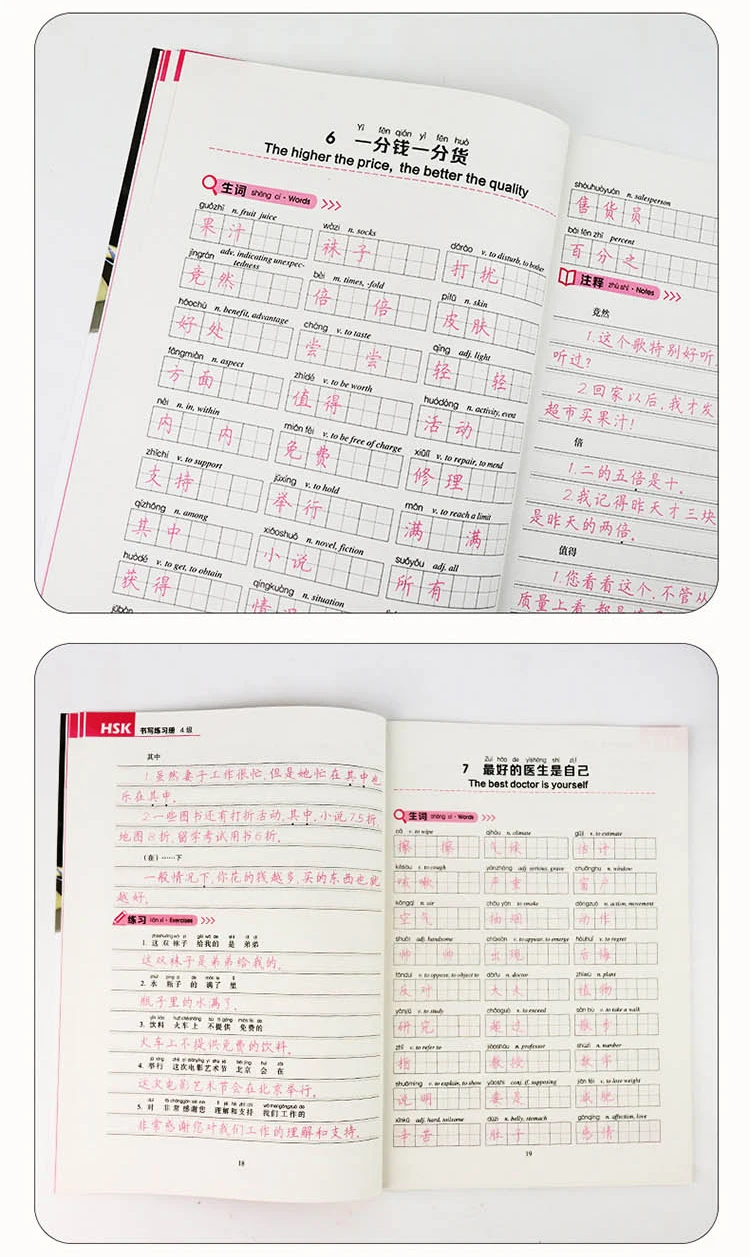 Yì fēn qián yì fēn huò
6 一分钱一分货
The higher the price, the better the quality
生词 shēng cí · Words
guǒzhī n. fruit juice
果汁
jìngrán adv. indicating unexpec-
tedness
竟然
hǎochù n. benefit, advantage
好处
fāngmiàn n. aspect
方面
nèi n. in, within
内 内
zhīchí v. to support
支持
qízhōng n. among
其中
huòdé v. to get, to obtain
获得
wàzi n. socks
袜子
bèi m. times, -fold
倍 倍
cháng v. to taste
尝 尝
zhídé v. to be worth
值得
miǎn fèi v. to be free of charge
免费
jǔxíng v. to hold
举行
xiǎoshuō n. novel, fiction
小说
qíngkuàng n. situation
dǎrǎo v. to disturb, to bother
打扰
pífū n. skin
皮肤
qīng adj. light
轻 轻
huódòng n. activity, event
活动
xiūlǐ v. to repair, to mend
修理
mǎn v. to reach a limit
满 满
suǒyǒu adj. all
所有
shòuhuòyuán n. salesperson
售货员
bǎi fēn zhī percent
百分之
注释 zhù shì · Notes
竟然
1.这个歌特别好听,
听过?
2.回家以后,我才发
超市买果汁!
倍
1.二的五倍是十。
2.我记得昨天才三块
是昨天的两倍。
值得
1.您看看这个,不管从
质量上看,都是
HSK 书写练习册 4级
其中
1.虽然妻子工作很忙,但是她忙在其中也
乐在其中。
2.一些图书还有打折活动,其中,小说7.5折,
地图8折,留学考试用书6折。
(在)……下
一般情况下,你花的钱越多,买的东西也就
越好。
练习 liàn xí · Exercises
1. 这双袜子 给我的 是 弟弟
这双袜子是弟弟给我的。
2. 水 瓶子 的 满了 里
瓶子里的水满了。
3. 饮料 火车上 不提供 免费的
火车上不提供免费的饮料。
4. 举行 这次电影艺术节 北京 会 在
这次电影艺术节会在北京举行。
5. 对 非常感谢您 理解和支持 我们工作的
非常感谢您对我们工作的理解和支持。
18
Zuì hǎo de yīshēng shì zìjǐ
7 最好的医生是自己
The best doctor is yourself
生词 shēng cí · Words
cā v. to wipe
擦 擦
késou v. to cough
咳嗽
kōngqì n. air
空气
shuài adj. handsome
帅 帅
fǎnduì v. to oppose, to object to
反对
yánjiū v. to study
研究
zhǐ v. to refer to
指
shuōmíng v. to explain, to show
说明
xīnkǔ adj. hard, toilsome
辛苦
qìhòu n. climate
气候
yánzhòng adj. serious, grave
严重
chōu yān to smoke
抽烟
chūxiàn v. to appear, to emerge
出现
dàifu n. doctor
大夫
chāoguò v. to exceed
超过
jiàoshòu n. professor
教授
yàoshi conj. if, supposing
要是
dùzi n. belly, stomach
肚子
gūjì v. to estimate
估计
chuānghu n. window
窗户
dòngzuò n. action, movement
动作
hòuhuǐ v. to regret
后悔
zhíwù n. plant
植物
sàn bù v. to take a walk
散步
shùzì n. number
数字
jiǎn féi v. to lose weight
减肥
gǎnqíng n. affection, love
感情
19